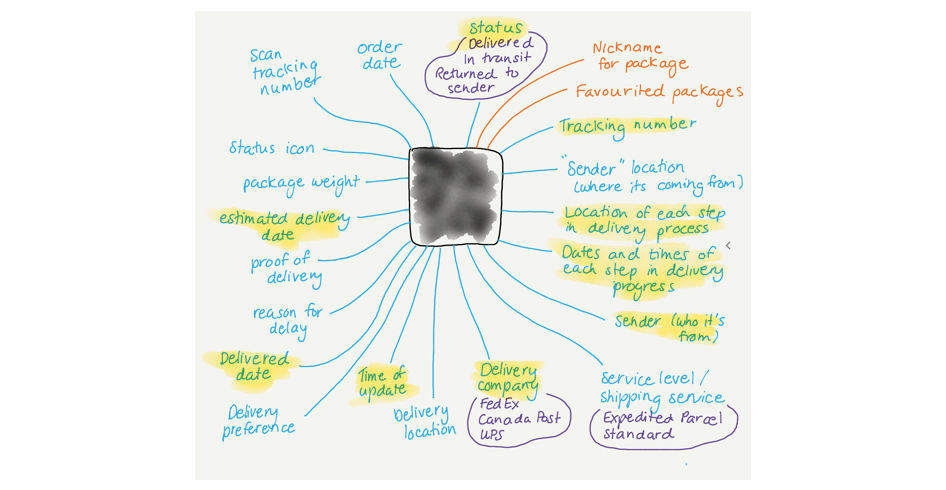 Status
Delivered
In transit
Returned to
sender
Scan
tracking
number
order
date
Nickname
for package
Favourited packages
Tracking number
"Sender" location
(where its coming from)
Location of each step
in delivery process
Dates and times of
each step in delivery
progress
Sender (who it's
from)
Service level/
shipping service
Expedited Parcel
Standard
Delivery
company
FedEx
Canada Post
UPS
Delivery
location
Time of
update
Delivery
preference
Delivered
date
reason for
delay
proof of
delivery
estimated delivery
date
package weight
Status icon